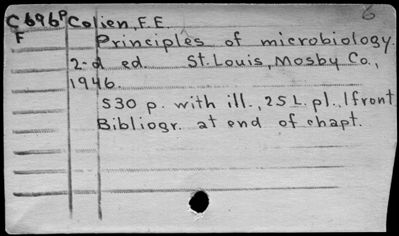 6
C696P Colien, F.E.
F
Principles of microbiology.
2-d ed. St. Louis, Mosby Co.,
1946.
530 p. with ill., 25 L. pl., 1 front
Bibliogr. at end of chapt.